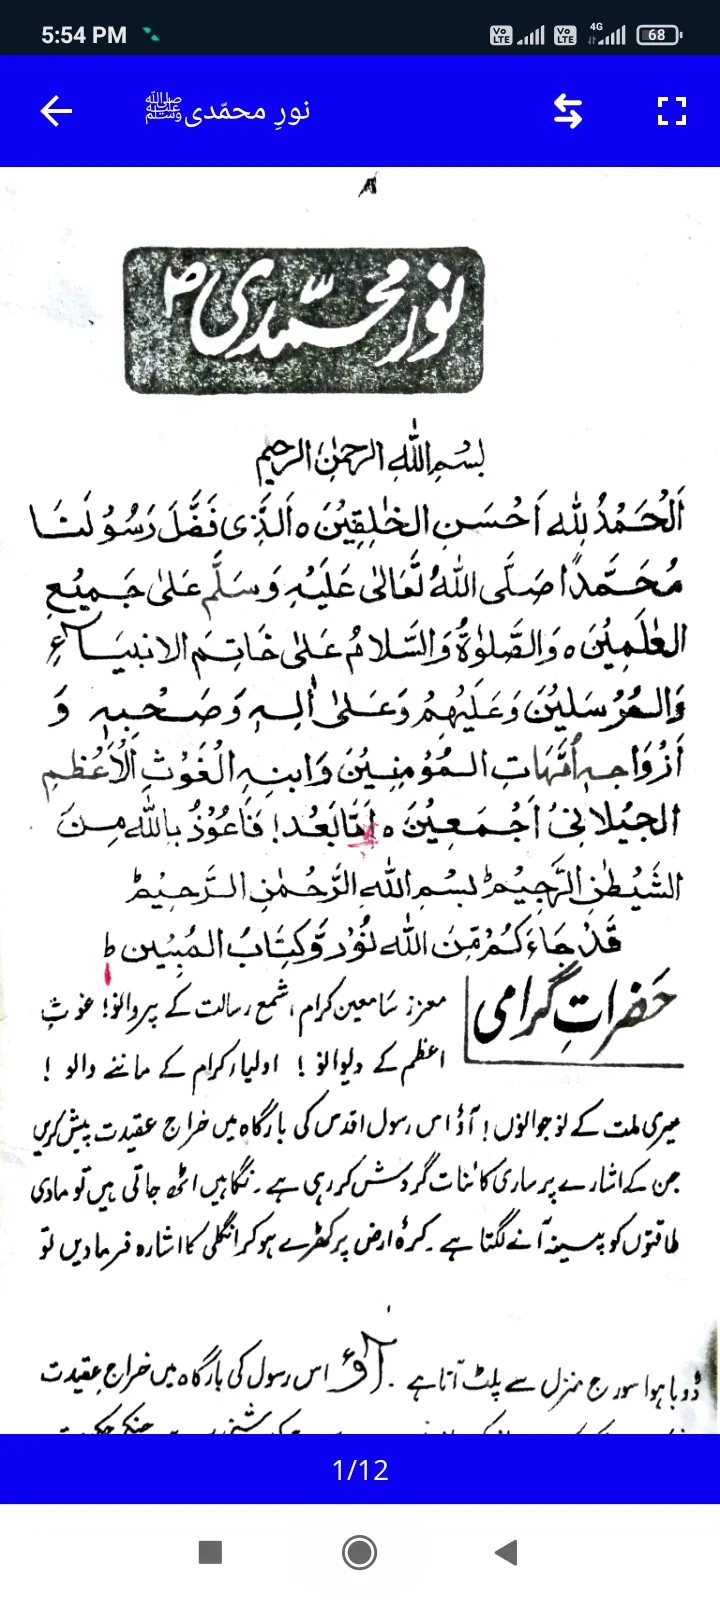 5:54 PM
4G
68
نورِ محمّدیﷺ
۸
نورِ محمّدیؐ
بِسْمِ اللّٰهِ الرحمٰنِ الرحیم
اَلْحَمْدُ لِلّٰهِ اَحْسَنِ الخٰلِقِیْنَ ہ اَلَّذِی فَضَّلَ رَسُوْلَنَا
مُحَمَّدًا صَلَّی اللّٰهُ تَعَالٰی عَلَیْہِ وَسَلَّم عَلیٰ جَمِیْعِ
العٰلَمِیْن ہ وَالصَّلوٰةُ وَالسَّلَامُ عَلیٰ خَاتِمَ الانبیَاءِ
وَالمُرْسَلِیْنَ وَعَلَیْهِمُ وَعَلیٰ اٰلِہٖ وَصَحْبِہٖ وَ
اَزْوَاجِہٖ اُمَّهَاتِ الْمُؤْمِنِیْنَ وَابنِہِ الْغَوْثِ الْاَعْظَمِ
الجِیْلَانِیْ اَجْمَعِیْنَ ہ اَمَّا بَعْد! فَاَعُوْذُ بِاللّٰہِ مِنَ
الشَّیْطٰنِ الرَّجِیْم ط بِسْمِ اللّٰهِ الرَّحْمٰنِ الرَّحِیْم ط
قَدْ جَاءَکُمْ مِّنَ اللّٰه نُوْر وَّکِتَابُ المُبِیْن ط
حَضراتِ گرامی
معزز سَامعین کرام، شمع رسالت کے پروانو! غوثِ
اعظم کے دیوانو! اولیاء کرام کے ماننے والو!
میری ملت کے نوجوانوں! آؤ اس رسول اقدس کی بارگاہ میں خراج عقیدت پیش کریں
جن کے اشارے پر ساری کائنات گردش کر رہی ہے۔ نگاہیں اٹھ جاتی ہیں تو مادی
طاقتوں کو پسینہ آنے لگتا ہے۔ کرۂ ارض پر کھڑے ہو کر انگلی کا اشارہ فرمادیں تو
ڈوبا ہوا سورج منزل سے پلٹ آتا ہے۔ آؤ اس رسول کی بارگاہ میں خراجِ عقیدت
1/12